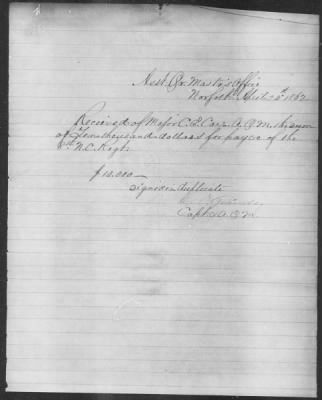 Asst Qr. Master's Office
Norfolk April 25th 1862
Received of Major C. E. Carr A. Q. M. the sum
of Ten thousand dollars for pay &c of the
N. C. Regt.
$10,000—
Signed in duplicate
Capt & A. Q. M.